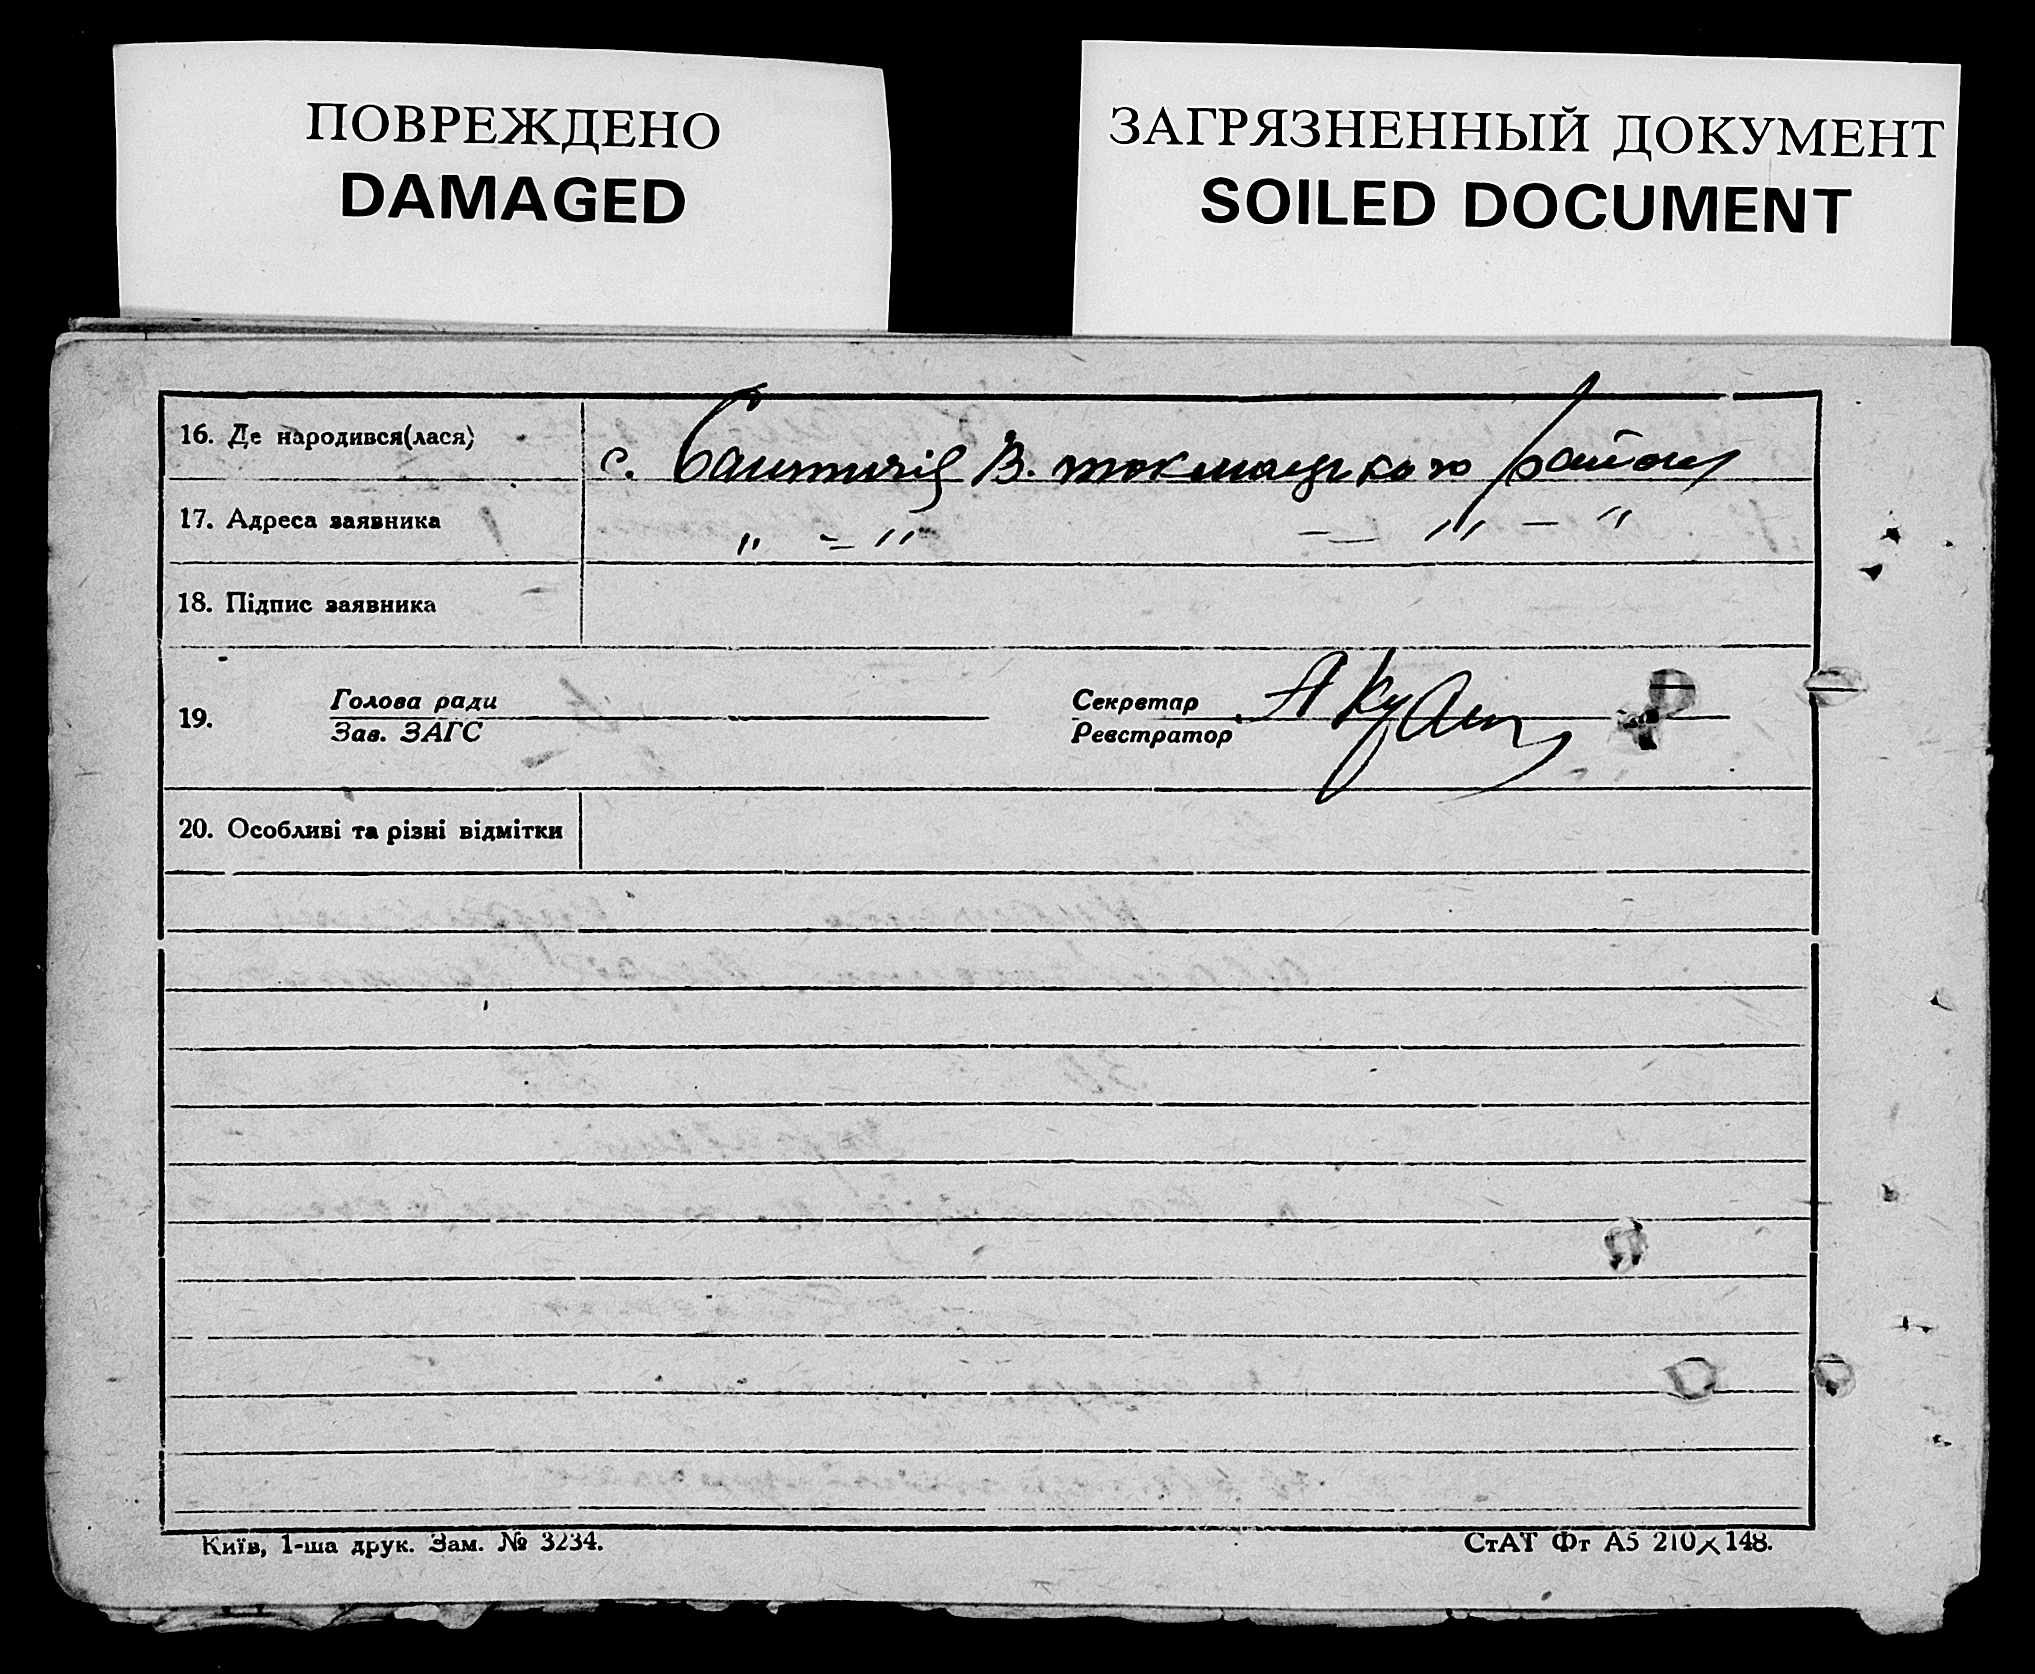 ПОВРЕЖДЕНО
DAMAGED
ЗАГРЯЗНЕННЫЙ ДОКУМЕНТ
SOILED DOCUMENT
16. Де народився(лася) с. В. токмацького району
17. Адреса заявника " — " — " — "
18. Підпис заявника
19. Голова ради
Зав. ЗАГС
Секретар
Реєстратор
20. Особливі та різні відмітки
Київ, 1-ша друк. Зам. № 3234.
СтАТ Фт А5 210×148.